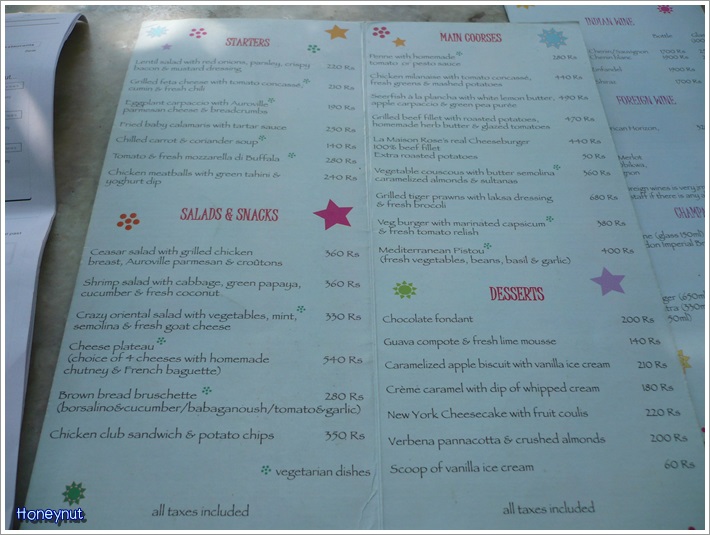 STARTERS
Lentil salad with red onions, parsley, crispy
bacon & mustard dressing 220 Rs
Grilled feta cheese with tomato concassé,
cumin & fresh chili 210 Rs
Eggplant carpaccio with Auroville
parmesan cheese & breadcrumbs 190 Rs
Fried baby calamaris with tartar sauce 230 Rs
Chilled carrot & coriander soup 140 Rs
Tomato & fresh mozzarella di Buffala 280 Rs
Chicken meatballs with green tahini &
yoghurt dip 240 Rs
SALADS & SNACKS
Ceasar salad with grilled chicken
breast, Auroville parmesan & croûtons 360 Rs
Shrimp salad with cabbage, green papaya,
cucumber & fresh coconut 360 Rs
Crazy oriental salad with vegetables, mint,
semolina & fresh goat cheese 330 Rs
Cheese plateau
(choice of 4 cheeses with homemade
chutney & French baguette) 540 Rs
Brown bread bruschette 280 Rs
(borsalino&cucumber/babaganoush/tomato&garlic)
Chicken club sandwich & potato chips 350 Rs
vegetarian dishes
all taxes included
MAIN COURSES
Penne with homemade
tomato or pesto sauce 280 Rs
Chicken milanaise with tomato concassé,
fresh greens & mashed potatoes 440 Rs
Seerfish à la plancha with white lemon butter,
apple carpaccio & green pea purée 490 Rs
Grilled beef fillet with roasted potatoes,
homemade herb butter & glazed tomatoes 470 Rs
La Maison Rose's real Cheeseburger
100% beef fillet 440 Rs
Extra roasted potatoes 50 Rs
Vegetable couscous with butter semolina
caramelized almonds & sultanas 360 Rs
Grilled tiger prawns with laksa dressing
& fresh brocoli 680 Rs
Veg burger with marinated capsicum
& fresh tomato relish 380 Rs
Mediterranean Pistou
(fresh vegetables, beans, basil & garlic) 400 Rs
DESSERTS
Chocolate fondant 200 Rs
Guava compote & fresh lime mousse 140 Rs
Caramelized apple biscuit with vanilla ice cream 210 Rs
Crème caramel with dip of whipped cream 180 Rs
New York Cheesecake with fruit coulis 220 Rs
Verbena pannacotta & crushed almonds 200 Rs
Scoop of vanilla ice cream 60 Rs
all taxes included
INDIAN WINE
Bottle
FOREIGN WINE
Horizon,
Merlot
wines is very
staff if there is any
CHAMP
(glass 150ml)
Imperial
Honeynut